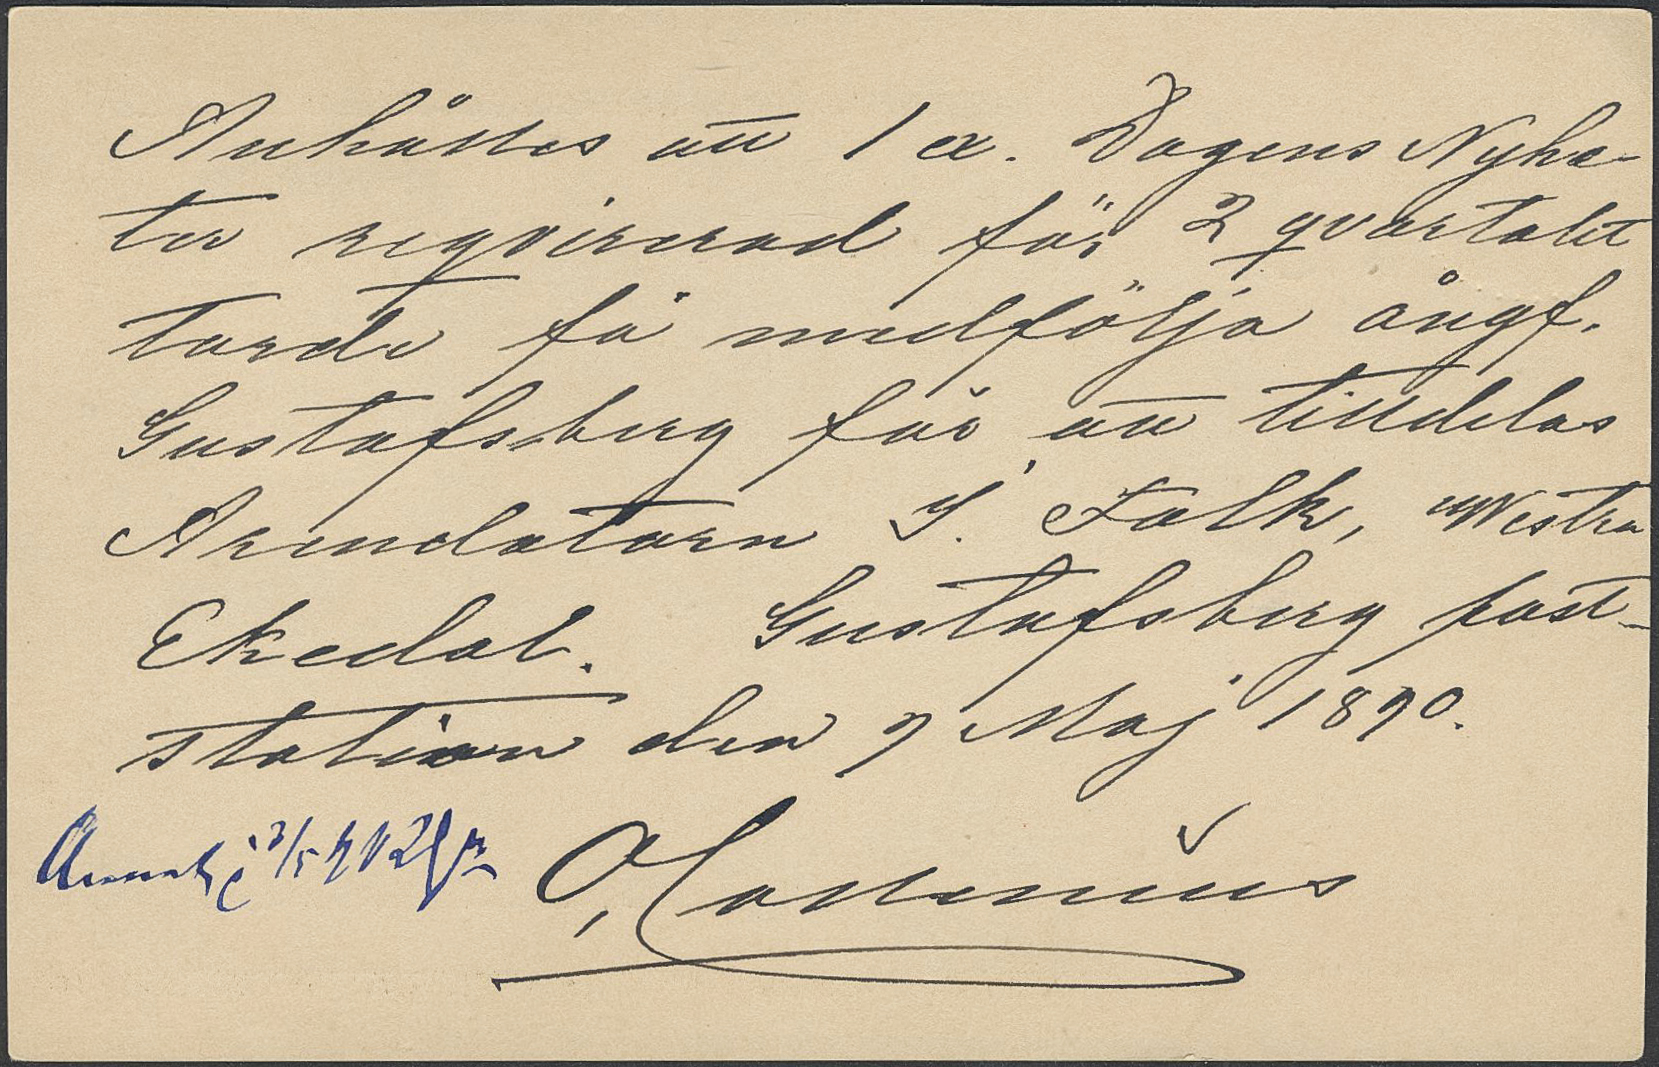 Anhålles att 1 ex. Dagens Nyhe-
ter reqvirerad för 2 qvartalet
torde få medfölja ångf.
Gustafsberg för att tilldelas
Arrendatorn J. Falk, Westra
Ekedal. Gustafsberg post-
station den 7 Maj 1890.